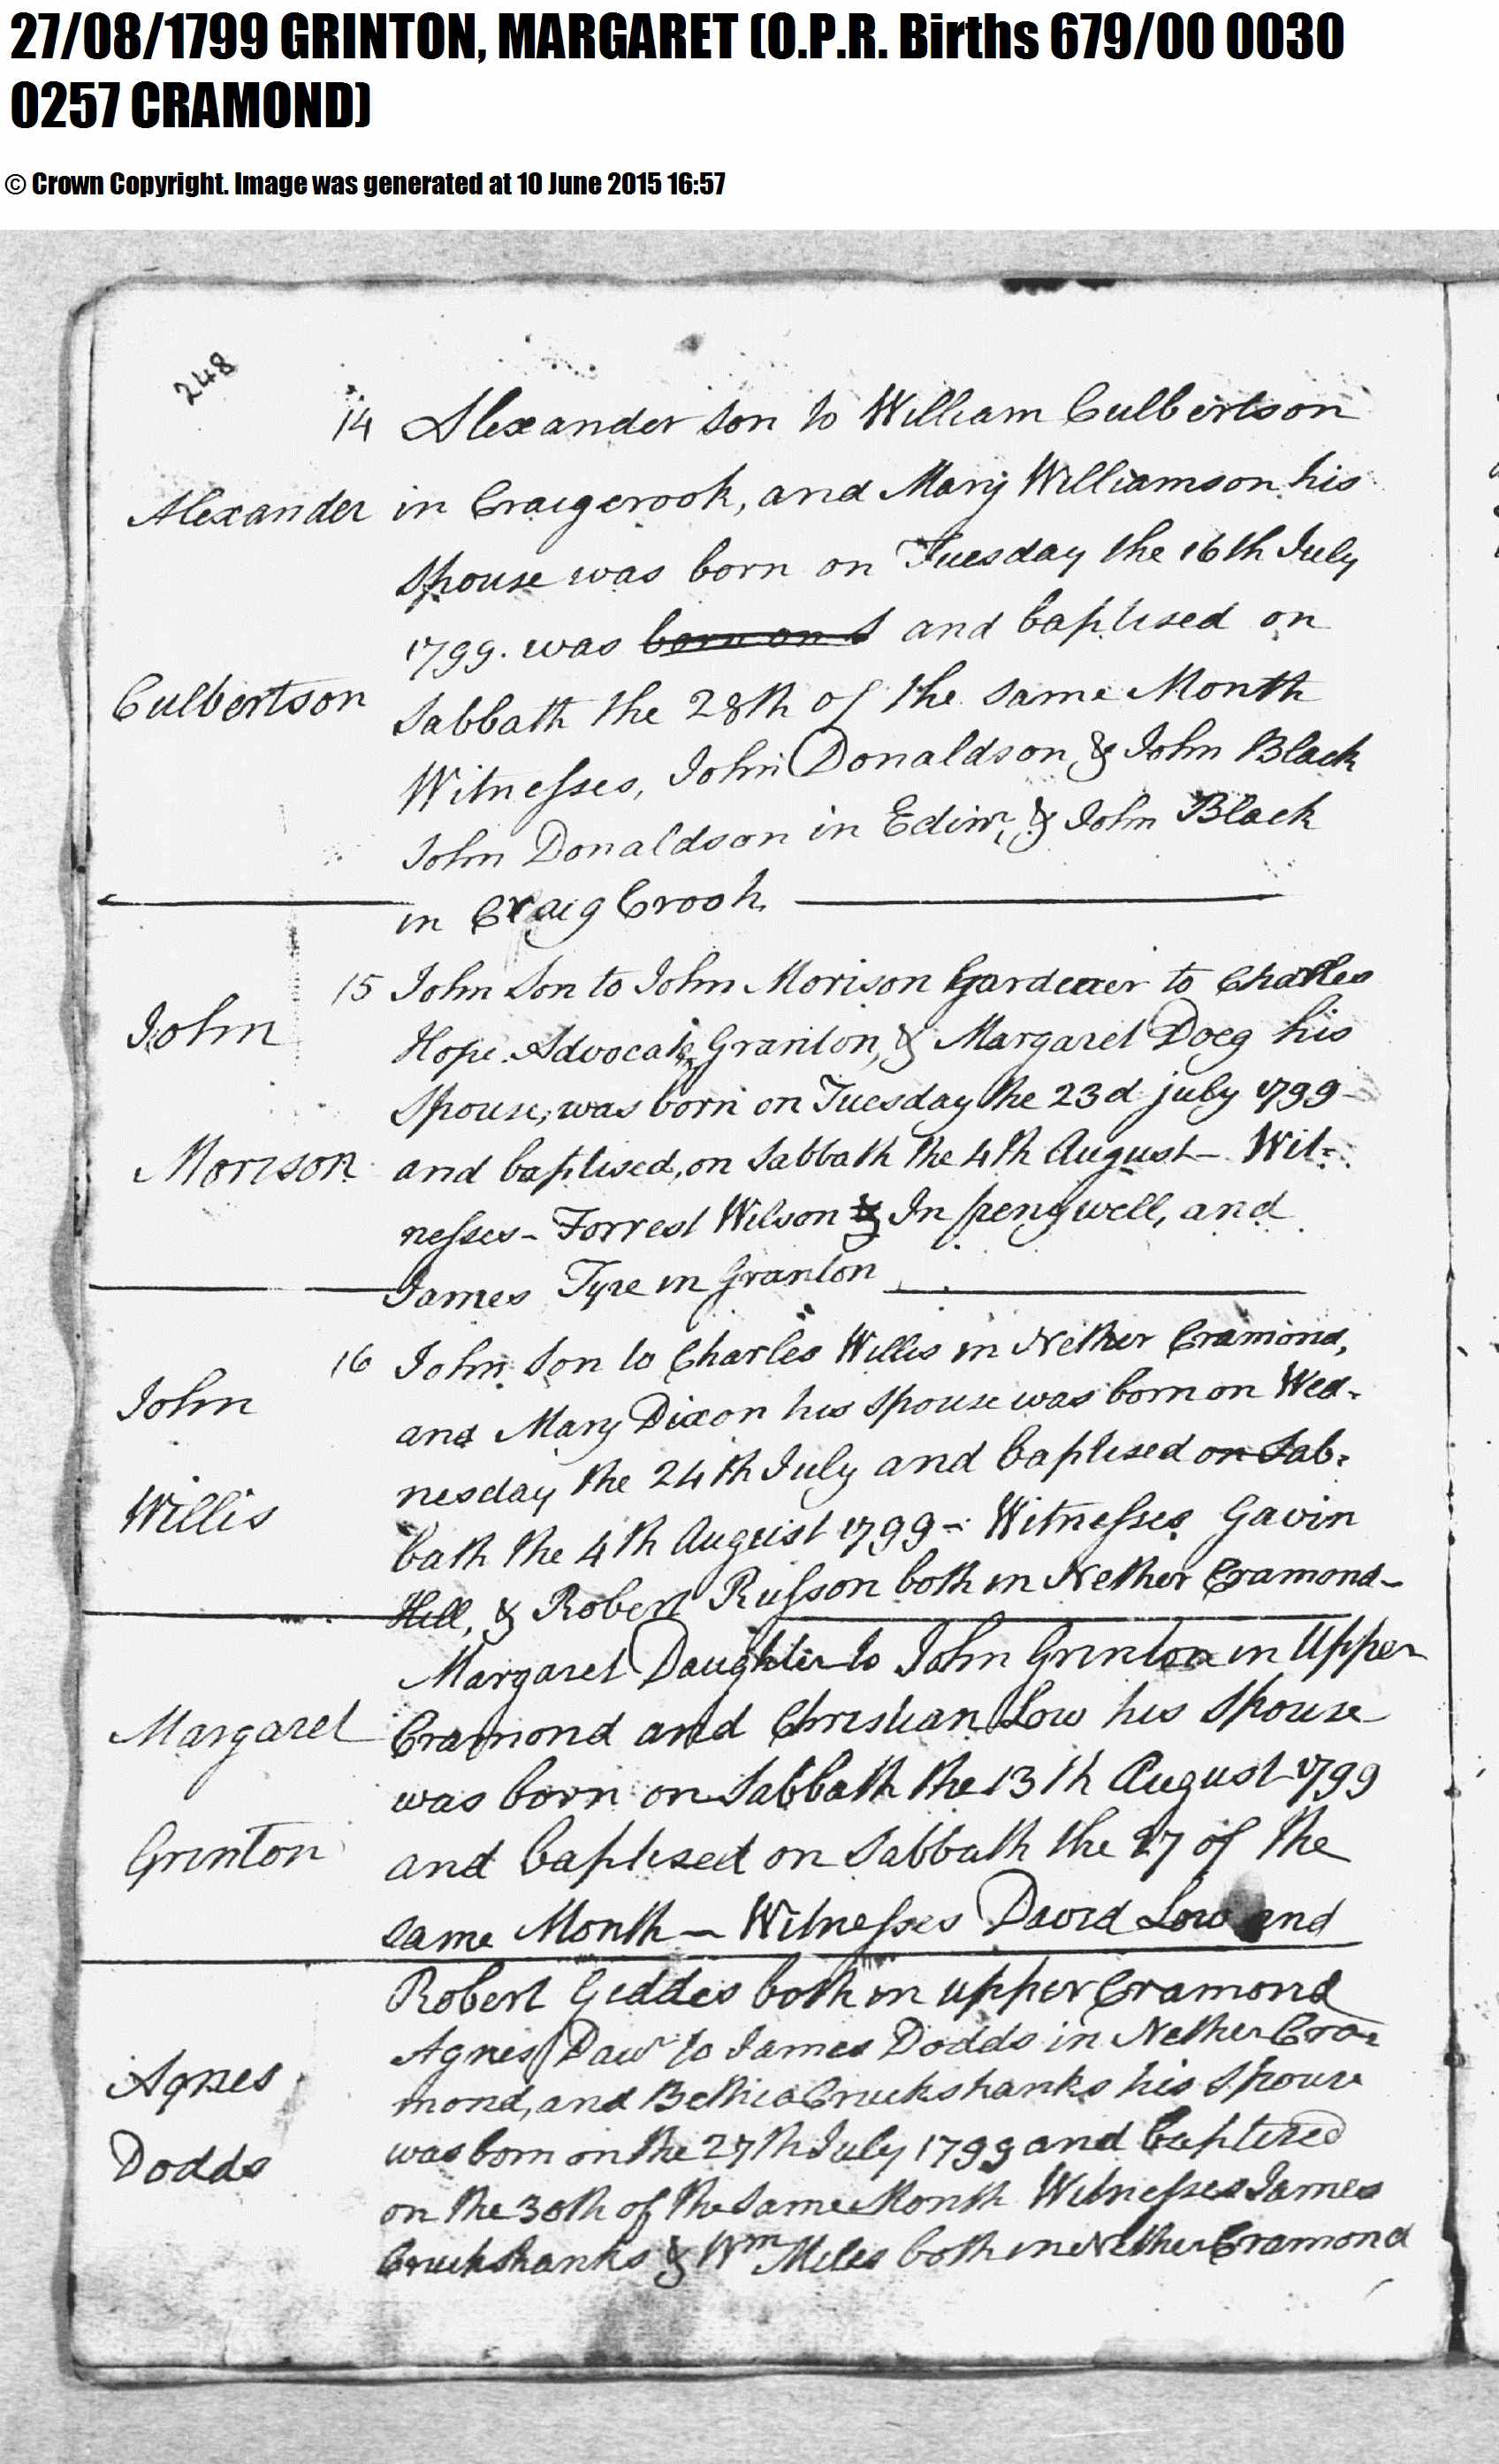 27/08/1799 GRINTON, MARGARET (O.P.R. Births 679/00 0030
0257 CRAMOND)
© Crown Copyright. Image was generated at 10 June 2015 16:57
248
14 Alexander Son to William Culbertson
Alexander in Craigcrook, and Mary Williamson his
Spouse was born on Tuesday the 16th July
1799. was born on S and baptised on
Culbertson Sabbath the 28th of the same Month
Witnesses, John Donaldson, & John Black
John Donaldson in Edinr, & John Black
in Craig Crook.
15 John Son to John Morison Gardener to Charles
John Hope Advocate Granton, & Margaret Doeg his
Spouse, was born on Tuesday the 23d july 1799-
Morison and baptised, on Sabbath the 4th August- Wit=
nesses- Forrest Wilson In pennywell, and
James Tyre in Granton
16 John Son to Charles Willis in Nether Cramond,
John and Mary Dixon his Spouse was born on Wed-
nesday the 24th July and baptised on Sab-
Willis bath the 4th August 1799- Witnesses Gavin
Hill, & Robert Russon both in Nether Cramond-
Margaret Daughter to John Grinton in Upper
Margaret Cramond and Christian Low his Spouse
was born on Sabbath the 13th August 1799
Grinton and baptised on Sabbath the 27 of the
same Month - Witnesses David Low and
Robert Geddes both in upper Cramond
Agnes Dawr to James Dodds in Nether Cra-
Agnes mond, and Bethia Cruckshanks his Spouse
Dodds was born on the 27th July 1799 and baptized
on the 30th of the Same Month Witnesses James
Cruckshanks & Wm Miles both in Nether Cramond